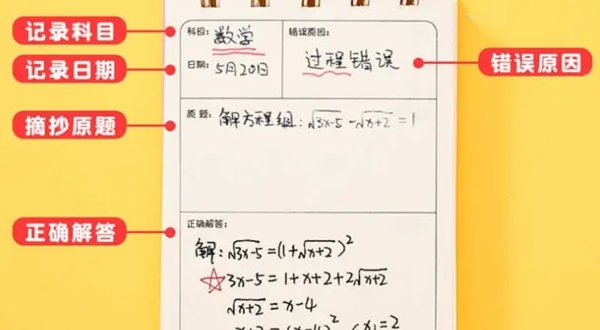 记录科目
科目: 数学
错误原因:
记录日期
日期: 5月20日
过程错误
错误原因
摘抄原题
原题: 解方程组: √3x-5 - √x+2 = 1
正确解答
正确解答:
解: √3x-5 = (1+√x+2)²
3x-5 = 1+x+2+2√x+2
√x+2 = x-4
x+2 = (x-4)² x₁=2